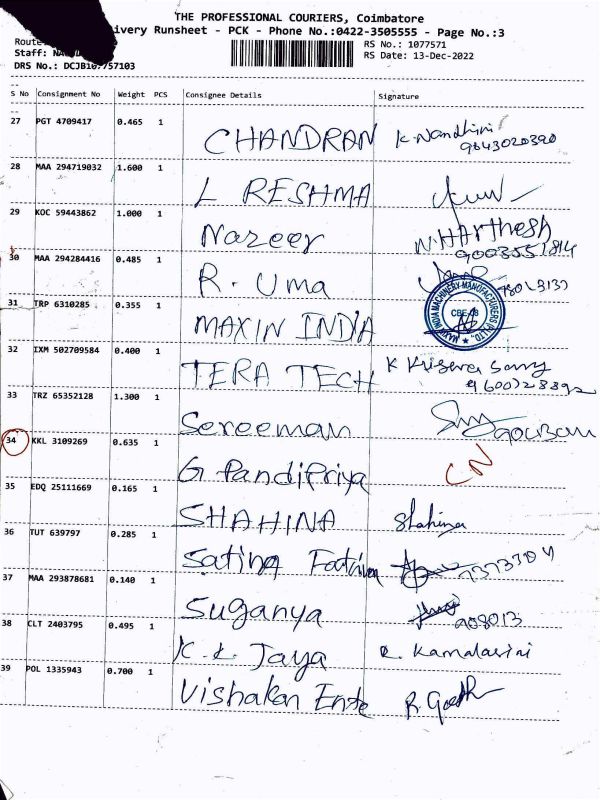 THE PROFESSIONAL COURIERS, Coimbatore
ivery Runsheet - PCK - Phone No.:0422-3505555 - Page No.:3
Route:
RS No.: 1077571
Staff:
RS Date: 13-Dec-2022
DRS No.: DCJB107757103
S No Consignment No Weight PCS Consignee Details Signature
27 PGT 4709417 0.465 1 CHANDRAN K. Nandhini
9043020390
28 MAA 294719032 1.600 1 L RESHMA
29 KOC 59443862 1.000 1 Nazeer N. HArthesh
9003551814
30 MAA 294284416 0.485 1 R. Uma
31 TRP 6310285 0.355 1 MAXIN INDIA
MAXIN INDIA MACHINERY MANUFACTURERS (P) LTD.,
32 IXM 502709584 0.400 1 TERA TECH K Krisena
33 TRZ 65352128 1.300 1 Sereeman
34 KKL 3109269 0.635 1 G Pandipriya CN
35 EDQ 25111669 0.165 1 SHAHINA Shahina
36 TUT 639797 0.285 1
37 MAA 293878681 0.140 1 Suganya
908013
38 CLT 2403795 0.495 1 K. K. Jaya
39 POL 1335943 0.700 1 Vishakan